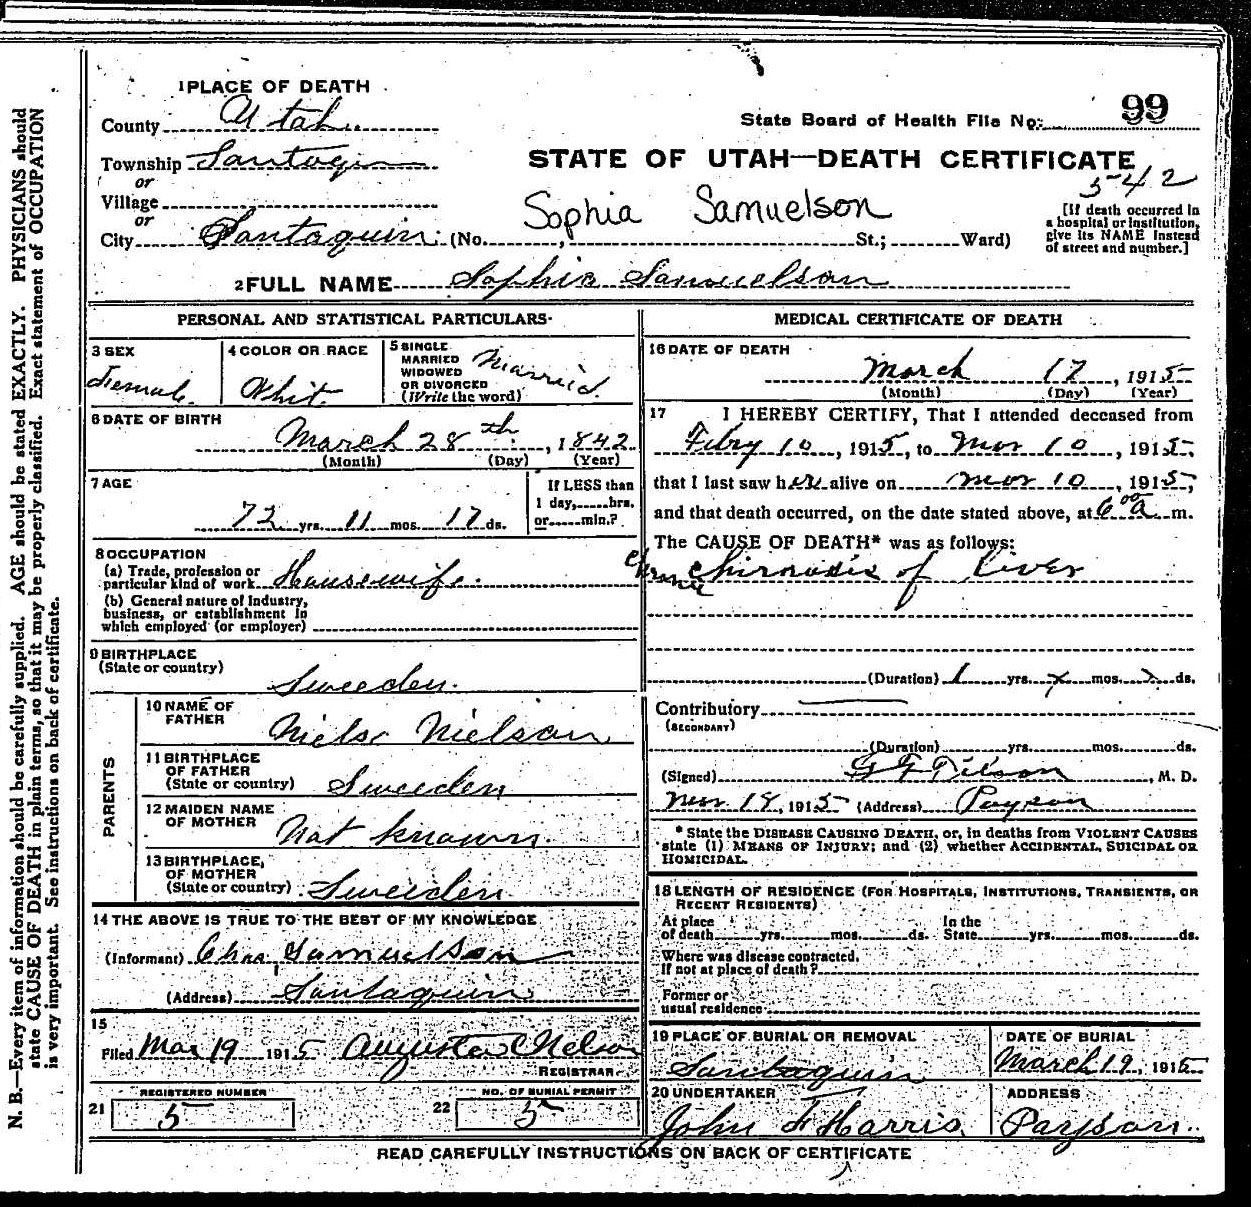 N. B.—Every item of information should be carefully supplied. AGE should be stated EXACTLY. PHYSICIANS should
state CAUSE OF DEATH in plain terms, so that it may be properly classified. Exact statement of OCCUPATION
is very important. See instructions on back of certificate.
1 PLACE OF DEATH
County Utah
Township Santaquin
or
Village
or
City Santaquin (No. , St.; Ward)
State Board of Health File No. 99
STATE OF UTAH—DEATH CERTIFICATE
542
Sophia Samuelson
[If death occurred in
a hospital or institution,
give its NAME instead
of street and number.]
2 FULL NAME Sophia Samuelson
PERSONAL AND STATISTICAL PARTICULARS
3 SEX
Female
4 COLOR OR RACE
Whit
5 SINGLE
MARRIED
WIDOWED
OR DIVORCED
(Write the word)
Married
6 DATE OF BIRTH
March 28th, 1842
(Month) (Day) (Year)
7 AGE
72 yrs. 11 mos. 17 ds.
If LESS than
1 day, hrs.
or min.?
8 OCCUPATION
(a) Trade, profession or
particular kind of work Housewife.
(b) General nature of Industry,
business, or establishment in
which employed (or employer)
9 BIRTHPLACE
(State or country)
Sweeden.
PARENTS
10 NAME OF
FATHER
Niels Nielson
11 BIRTHPLACE
OF FATHER
(State or country) Sweeden
12 MAIDEN NAME
OF MOTHER
Not known.
13 BIRTHPLACE
OF MOTHER
(State or country) Sweeden
14 THE ABOVE IS TRUE TO THE BEST OF MY KNOWLEDGE
(Informant) Chas Samuelson
(Address) Santaquin
15
Filed Mar 19 1915 Augusta C Nelson
REGISTRAR
REGISTERED NUMBER
21 5
NO. OF BURIAL PERMIT
22 5
MEDICAL CERTIFICATE OF DEATH
16 DATE OF DEATH
March 17, 1915
(Month) (Day) (Year)
17 I HEREBY CERTIFY, That I attended deceased from
Febry 10, 1915, to Mar 10, 1915,
that I last saw her alive on Mar 10, 1915,
and that death occurred, on the date stated above, at 6 00 a m.
The CAUSE OF DEATH* was as follows:
Chronic Chirrosis of Liver
(Duration) 1 yrs. x mos. ds.
Contributory
(SECONDARY)
(Duration) yrs. mos. ds.
(Signed) , M. D.
Mar 18, 1915 (Address) Payson
* State the DISEASE CAUSING DEATH, or, in deaths from VIOLENT CAUSES
state (1) MEANS OF INJURY; and (2) whether ACCIDENTAL, SUICIDAL OR
HOMICIDAL.
18 LENGTH OF RESIDENCE (FOR HOSPITALS, INSTITUTIONS, TRANSIENTS, OR
RECENT RESIDENTS)
At place
of death yrs. mos. ds.
In the
State yrs. mos. ds.
Where was disease contracted,
If not at place of death?
Former or
usual residence
19 PLACE OF BURIAL OR REMOVAL
Santaquin
DATE OF BURIAL
March 19, 1915
20 UNDERTAKER
John F Harris
ADDRESS
Payson.
READ CAREFULLY INSTRUCTIONS ON BACK OF CERTIFICATE